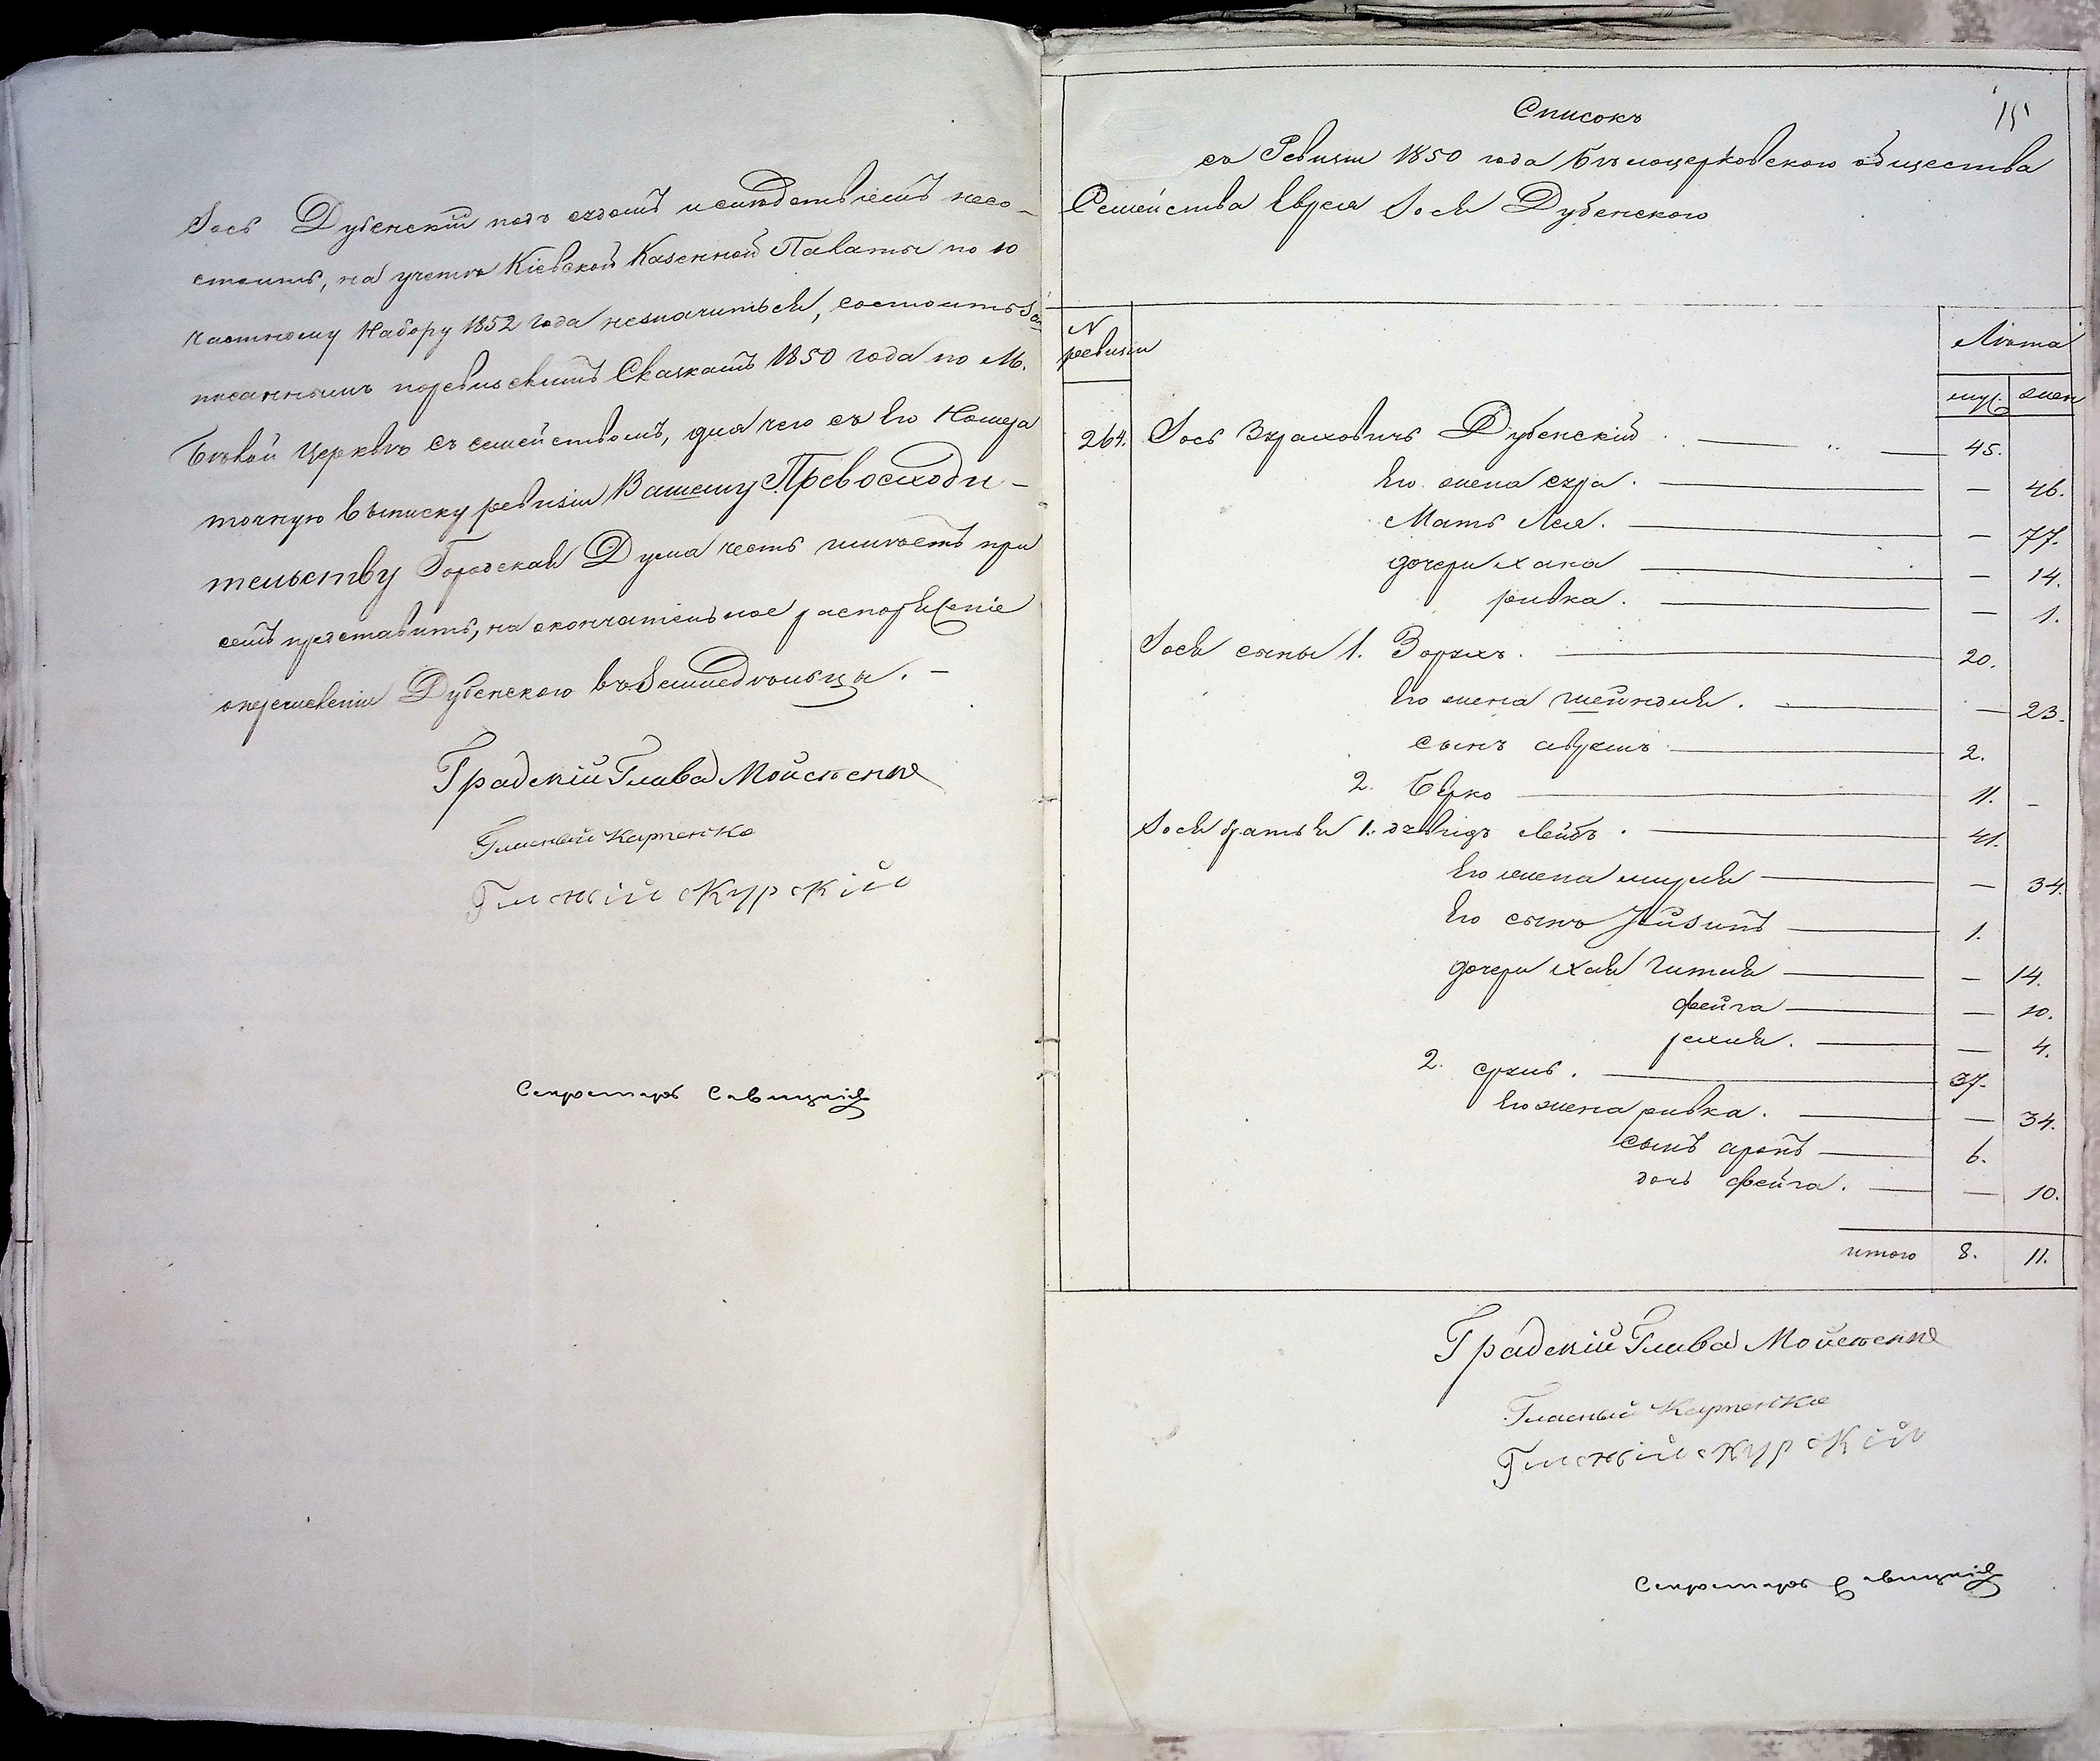 Іось Дубенскій подъ судомъ и слѣдствіемъ несо-
стоитъ, на учетѣ Кіевской Казенной Палаты по 10
частному Набору 1852 года незначиться, состоитъ за
писаннымъ поревизскимъ Сказкамъ 1850 года по М.
Бѣлой Церквѣ съ семействомъ, для чего съ его Номера
точную выписку ревизіи Вашему Превосходи-
тельству Городская Дума честь имѣетъ при
семъ представить, на окончательное распоряженіе
о перечисленіи Дубенского въ Земледѣльцы. –
Градскій Глава Мойсѣенко
Гласный Карпенко
Гласный Курскій
Секретарь Савицкій
15
Списокъ
съ Ревизіи 1850 года Бѣлоцерковского общества
Семейства Еврея Іося Дубенского
N ревизіи
Лѣта
муж. жен
264. Іось Зораховичъ Дубенскій 45.
Его жена сура. — 46.
Мать Лея. — 77.
дочери хана — 14.
ривка. — 1.
Іося сыны 1. Зорухъ. 20.
Его жена шейндля. — 23.
сынъ аврумъ 2.
2. Берко 11. –
Іося братья 1. давидъ лейбъ. 41.
Его жена мируля — 34.
Его сынъ 1.
дочери хая гитля — 14.
фейга — 10.
рахля. — 4.
2. сруль. 37.
Его жена ривка. — 34.
сынъ аронъ 6.
дочь фейга. — 10.
итого 8. 11.
Градскій Глава Мойсѣенко
Гласный Карпенко
Гласный Курскій
Секретарь Савицкій